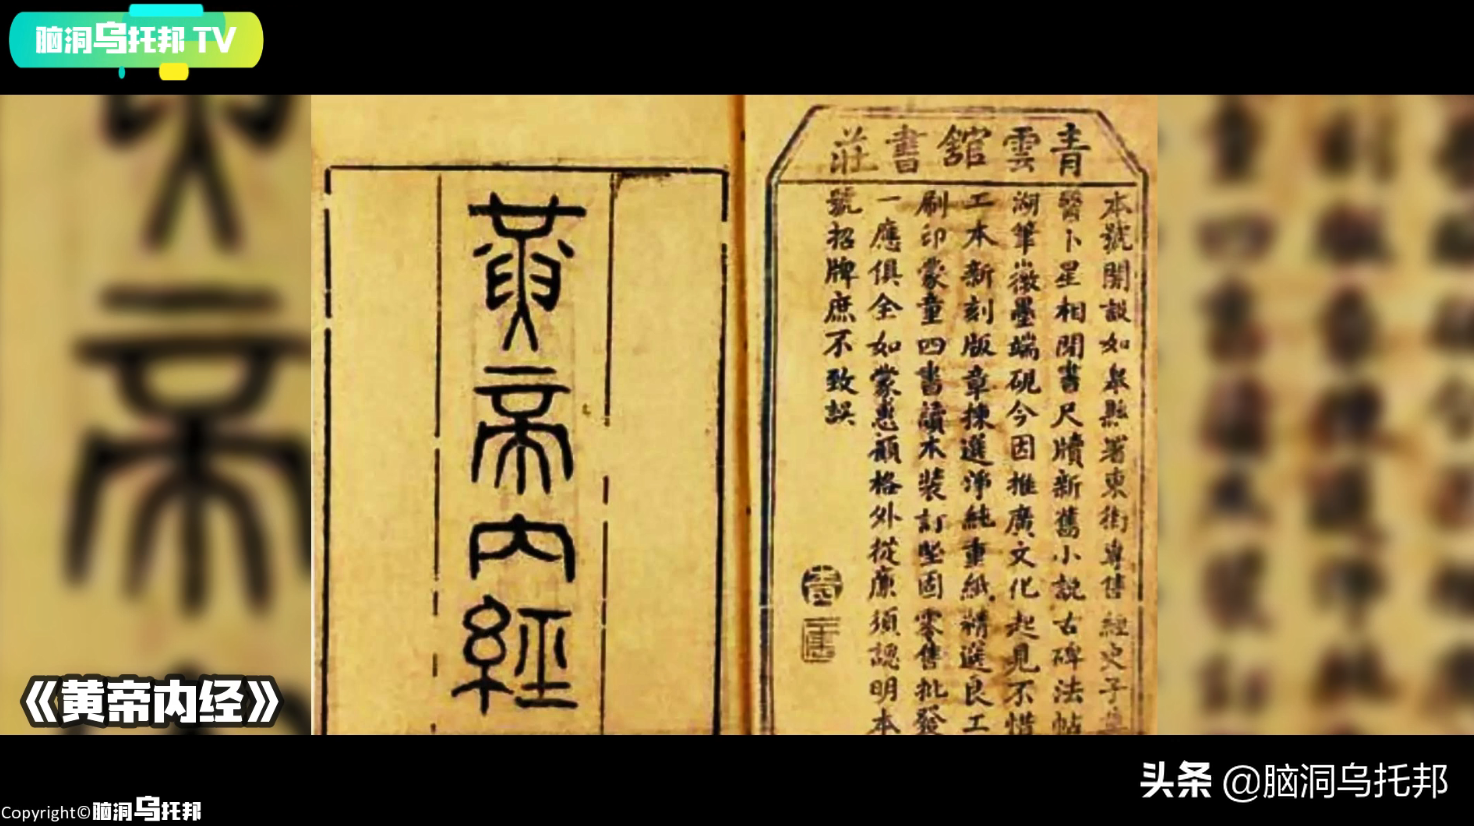 脑洞乌托邦 TV
青雲舘書莊
本號開設如皋縣署東街專售經史子集
醫卜星相閒書尺牘新舊小說古碑法帖
湖筆徽墨端硯今因推廣文化起見不惜
工本新刻版章揀選淨純重紙精選良工
刷印蒙童四書讀本裝訂堅固零售批發
一應俱全如蒙惠顧格外從廉須認明本
號招牌庶不致誤
黃帝內經
《黄帝内经》
头条 @脑洞乌托邦
Copyright©脑洞乌托邦